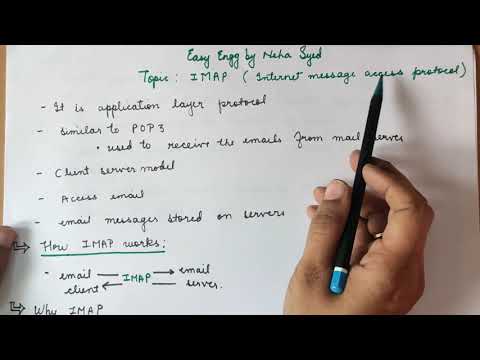 Easy Engg by Neha Syed
Topic : IMAP ( Internet message access protocol)
- It is application layer protocol
- similar to POP3
• used to receive the emails from mail server
- Client server model
- Access email
- email messages stored on servers
How IMAP works:
- email IMAP email
client server.
Why IMAP